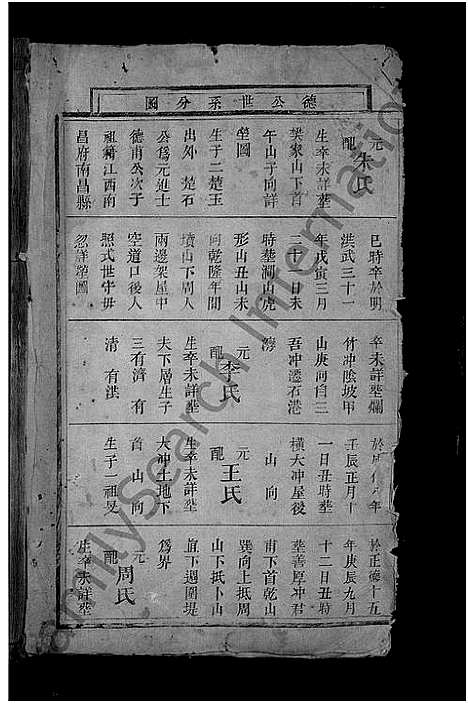 德公世系分圖
元配朱氏
生卒未詳塟
樊家山下首
午山子向詳
塋圖
生于二楚玉
出外 楚石
公爲元進士
德甫公次子
祖籍江西南
昌府南昌縣
巳時卒於明
洪武三十一
年戊寅三月
二十八日未
時塟澗山虎
形山丑山未
向乾隆年間
墳山下周人
兩邊架屋中
空道口後人
照式世守毋
忽詳塋圖
卒未詳塟爛
竹冲陰坡甲
山庚向自三
吾冲遷石港
灣
元配李氏
生卒未詳塟
夫下層生子
三有濟 有
清 有洪
於年
壬辰正月十
一日丑時塟
橫大冲屋後
山 向
元配王氏
生卒未詳塟
大冲土地下
首 山 向
生子一祖旻
於正德十五
年庚辰九月
十二日丑時
塟善厚冲君
甫下首乾山
巽向上抵周
山下抵卜山
直下週圍堤
爲界
元配周氏
生卒未詳塟